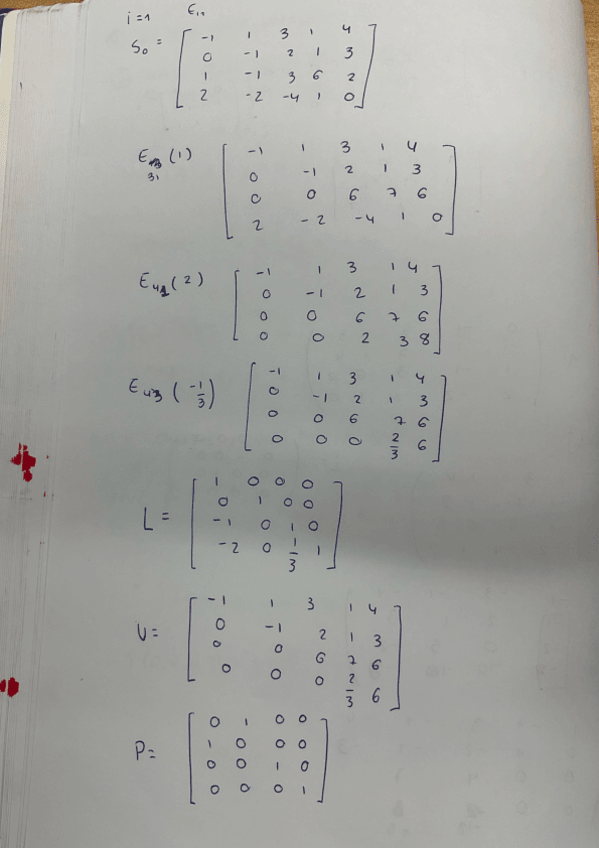 i=1 E₁₁
S₀ = [ -1 1 3 1 4
0 -1 2 1 3
1 -1 3 6 2
2 -2 -4 1 0 ]
E₃₁ (1) [ -1 1 3 1 4
0 -1 2 1 3
0 0 6 7 6
2 -2 -4 1 0 ]
E₄₁ (2) [ -1 1 3 1 4
0 -1 2 1 3
0 0 6 7 6
0 0 2 3 8 ]
E₄₃ (-1/3) [ -1 1 3 1 4
0 -1 2 1 3
0 0 6 7 6
0 0 0 2/3 6 ]
L = [ 1 0 0 0
0 1 0 0
-1 0 1 0
-2 0 1/3 1 ]
U = [ -1 1 3 1 4
0 -1 2 1 3
0 0 6 7 6
0 0 0 2/3 6 ]
P = [ 0 1 0 0
1 0 0 0
0 0 1 0
0 0 0 1 ]